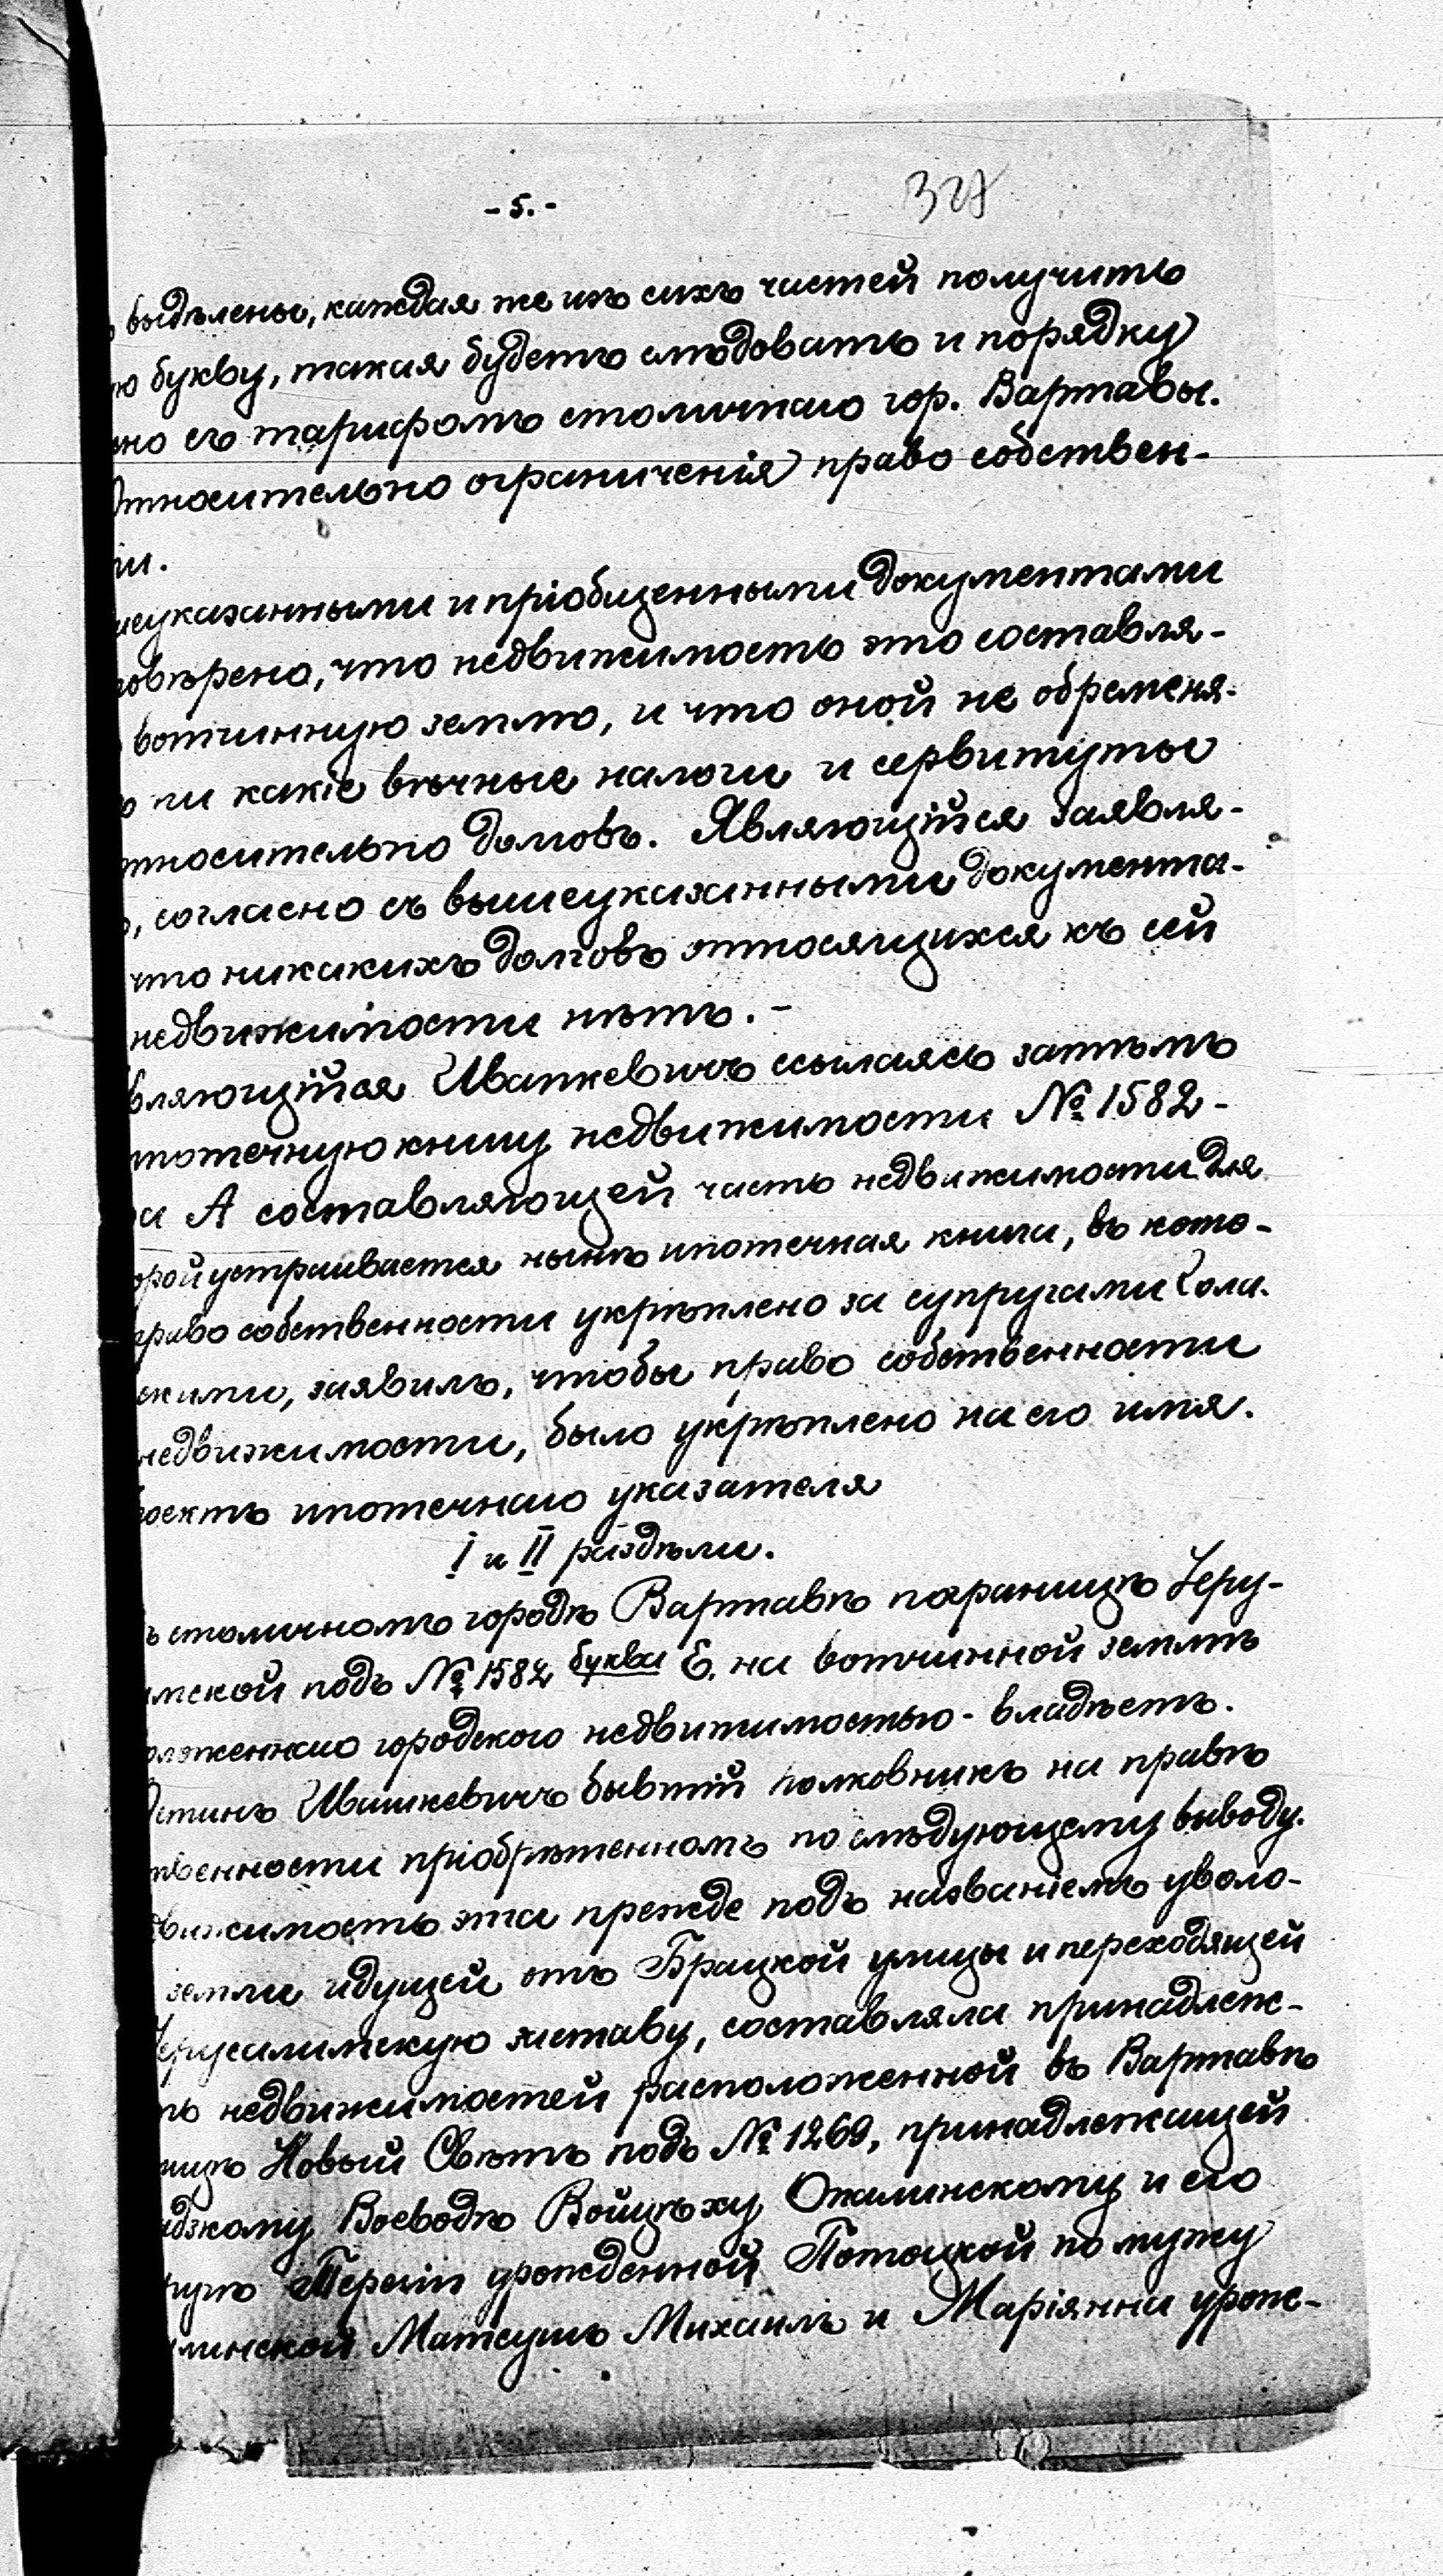 - 5. -
327
выдѣлены, каждая же изъ сихъ частей получитъ
ю букву, такая будетъ слѣдовать и порядку
но съ тарифомъ столичнаго гор. Варшавы.
Относительно ограниченія право собствен-
ти.
еуказанными и пріобщенными документами
овѣрено, что недвижимость это составля-
вотчинную землю, и что оной не обременя-
ни какіе вѣчные налоги и сервитуты
относительно долговъ. Являющійся заявля-
, согласно съ вышеуказанными документа-
что никакихъ долговъ относящихся къ сей
недвижимости нѣтъ. -
вляющійся Ивашкевичъ ссылаясь затѣмъ
потечную книгу недвижимости № 1582 -
а А составляющей часть недвижимости для
орой устраивается нынѣ ипотечная книга, въ кото-
право собственности укрѣплено за супругами Гола-
скими, заявилъ, чтобы право собственности
недвижимости, было укрѣплено на его имя.
роектъ ипотечнаго указателя
I и II раздѣли.
ъ столичномъ городѣ Варшавѣ по границѣ Іеру-
имской подъ № 1582 буква Е. на вотчинной землѣ
оложеннаго городского недвижимостью - владѣетъ.
стинъ Ивашкевичъ бывшій полковникъ на правѣ
твенности пріобрѣтенномъ по слѣдующему выводу.
движимость эта прежде подъ названіемъ уволо-
земли идущей отъ Брацкой улицы и переходящей
Іерусалимскую заставу, составляла принадлеж-
ть недвижимостей расположенной въ Варшавѣ
лицѣ Новый Свѣтъ подъ № 1269, принадлежащей
адзкому Воеводѣ Войцѣху Опалинскому и его
пругѣ Терезіи урожденной Потоцкой по мужу
алинской Матеушъ Михаилъ и Маріянна урож-